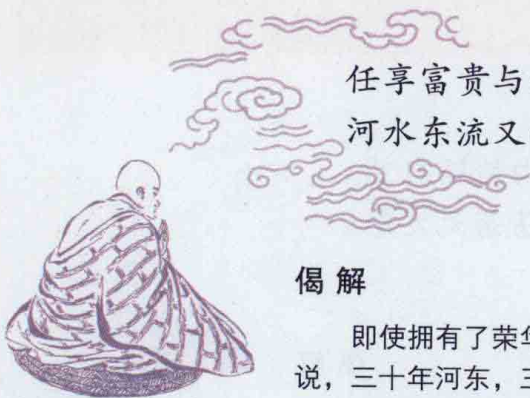 任享富贵与
河水东流又
偈解
即使拥有了荣华
说，三十年河东，三